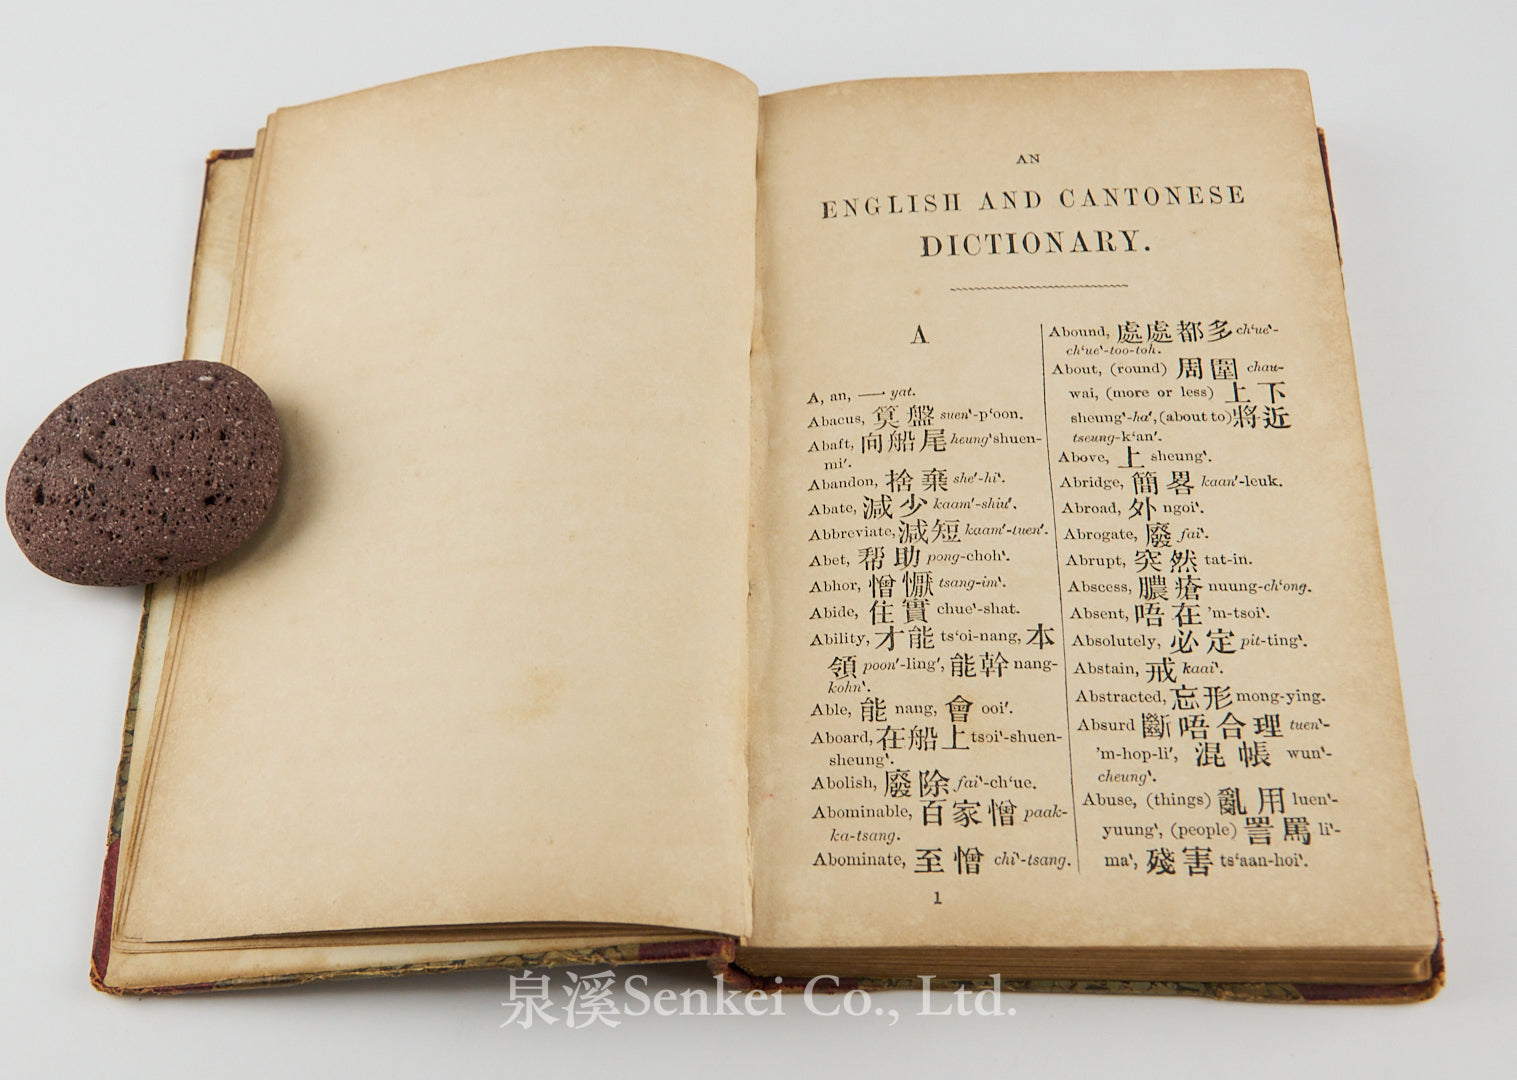 AN
ENGLISH AND CANTONESE
DICTIONARY.
A
A, an, 一 yat.
Abacus, 筭盤 suen‵-p‘oon.
Abaft, 向船尾 heung‵shuen-
mi′.
Abandon, 捨棄 she′-hi‵.
Abate, 減少 kaam′-shiu′.
Abbreviate, 減短 kaam′-tuen′.
Abet, 帮助 pong-choh‵.
Abhor, 憎懨 tsang-im‵.
Abide, 住實 chue‵-shat.
Ability, 才能 ts‘oi-nang, 本
領 poon′-ling′, 能幹 nang-
kohn‵.
Able, 能 nang, 會 ooi′.
Aboard, 在船上 tsoi‵-shuen-
sheung‵.
Abolish, 廢除 fai‵-ch‘ue.
Abominable, 百家憎 paak-
ka-tsang.
Abominate, 至憎 chi‵-tsang.
Abound, 處處都多 ch‘ue‵-
ch‘ue‵-too-toh.
About, (round) 周圍 chau-
wai, (more or less) 上下
sheung‵-ha‵, (about to) 將近
tseung-k‘an′.
Above, 上 sheung‵.
Abridge, 簡畧 kaan′-leuk.
Abroad, 外 ngoi‵.
Abrogate, 廢 fai‵.
Abrupt, 突然 tat-in.
Abscess, 膿瘡 nuung-ch‘ong.
Absent, 唔在 ’m-tsoi‵.
Absolutely, 必定 pit-ting‵.
Abstain, 戒 kaai‵.
Abstracted, 忘形 mong-ying.
Absurd 斷唔合理 tuen‵-
’m-hop-li′, 混帳 wun‵-
cheung‵.
Abuse, (things) 亂用 luen‵-
yuung‵, (people) 詈罵 li‵-
ma‵, 殘害 ts‘aan-hoi‵.
1
泉溪Senkei Co., Ltd.